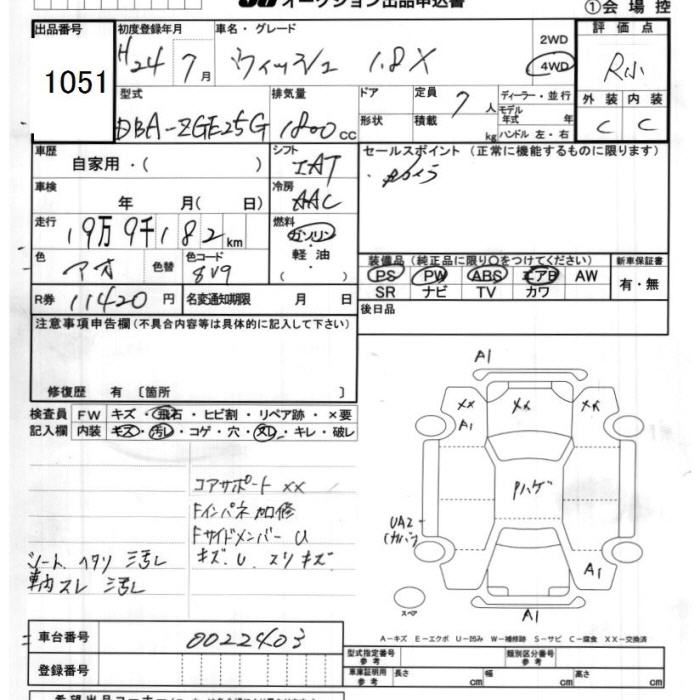 オークション出品申込書
①会場控
出品番号 初度登録年月 車名・グレード 評価点
1051 H24 7月 ウィッシュ 1.8X 2WD 4WD R小
型式 排気量 ドア 定員 7人 ディーラー・並行 外装 内装
DBA-ZGE25G 1800cc 形状 積載 kg モデル年式 年式 ハンドル 左・右 C C
車歴 シフト セールスポイント (正常に機能するものに限ります)
自家用・( ) IAT
車検 冷房
年 月( 日) AAC
走行 燃料
19万9千182km ガソリン
軽油
色 色コード ・( )
アオ 色替 8V9
装備品 (純正品に限り○をつけてください) 新車保証書
PS PW ABS エアB AW 有・無
SR ナビ TV カワ
R券 11420円 名変通知期限 月 日 後日品
注意事項申告欄(不具合内容等は具体的に記入して下さい)
修復歴 有〔箇所 〕
検査員 FW キズ・飛石・ヒビ割・リペア跡・×要
記入欄 内装 キズ・汚レ・コゲ・穴・スレ・キレ・破レ
コアサポート ××
Fインパネ加修
Fサイドメンバー U
シート ヘタリ 汚レ キズ、U、スリキズ
車内 スレ 汚レ
A1
×× ×× ××
A1
Pハゲ
UA2
(カバー)
A1
スペア
A1
A-キズ E-エクボ U-凹み W-補修跡 S-サビ C-腐食 XX-交換済
車台番号 0022403 型式指定番号 参考 類別区分番号 参考
登録番号 車庫証明用 参考 長さ cm 幅 cm 高さ cm
希望出品コーナー